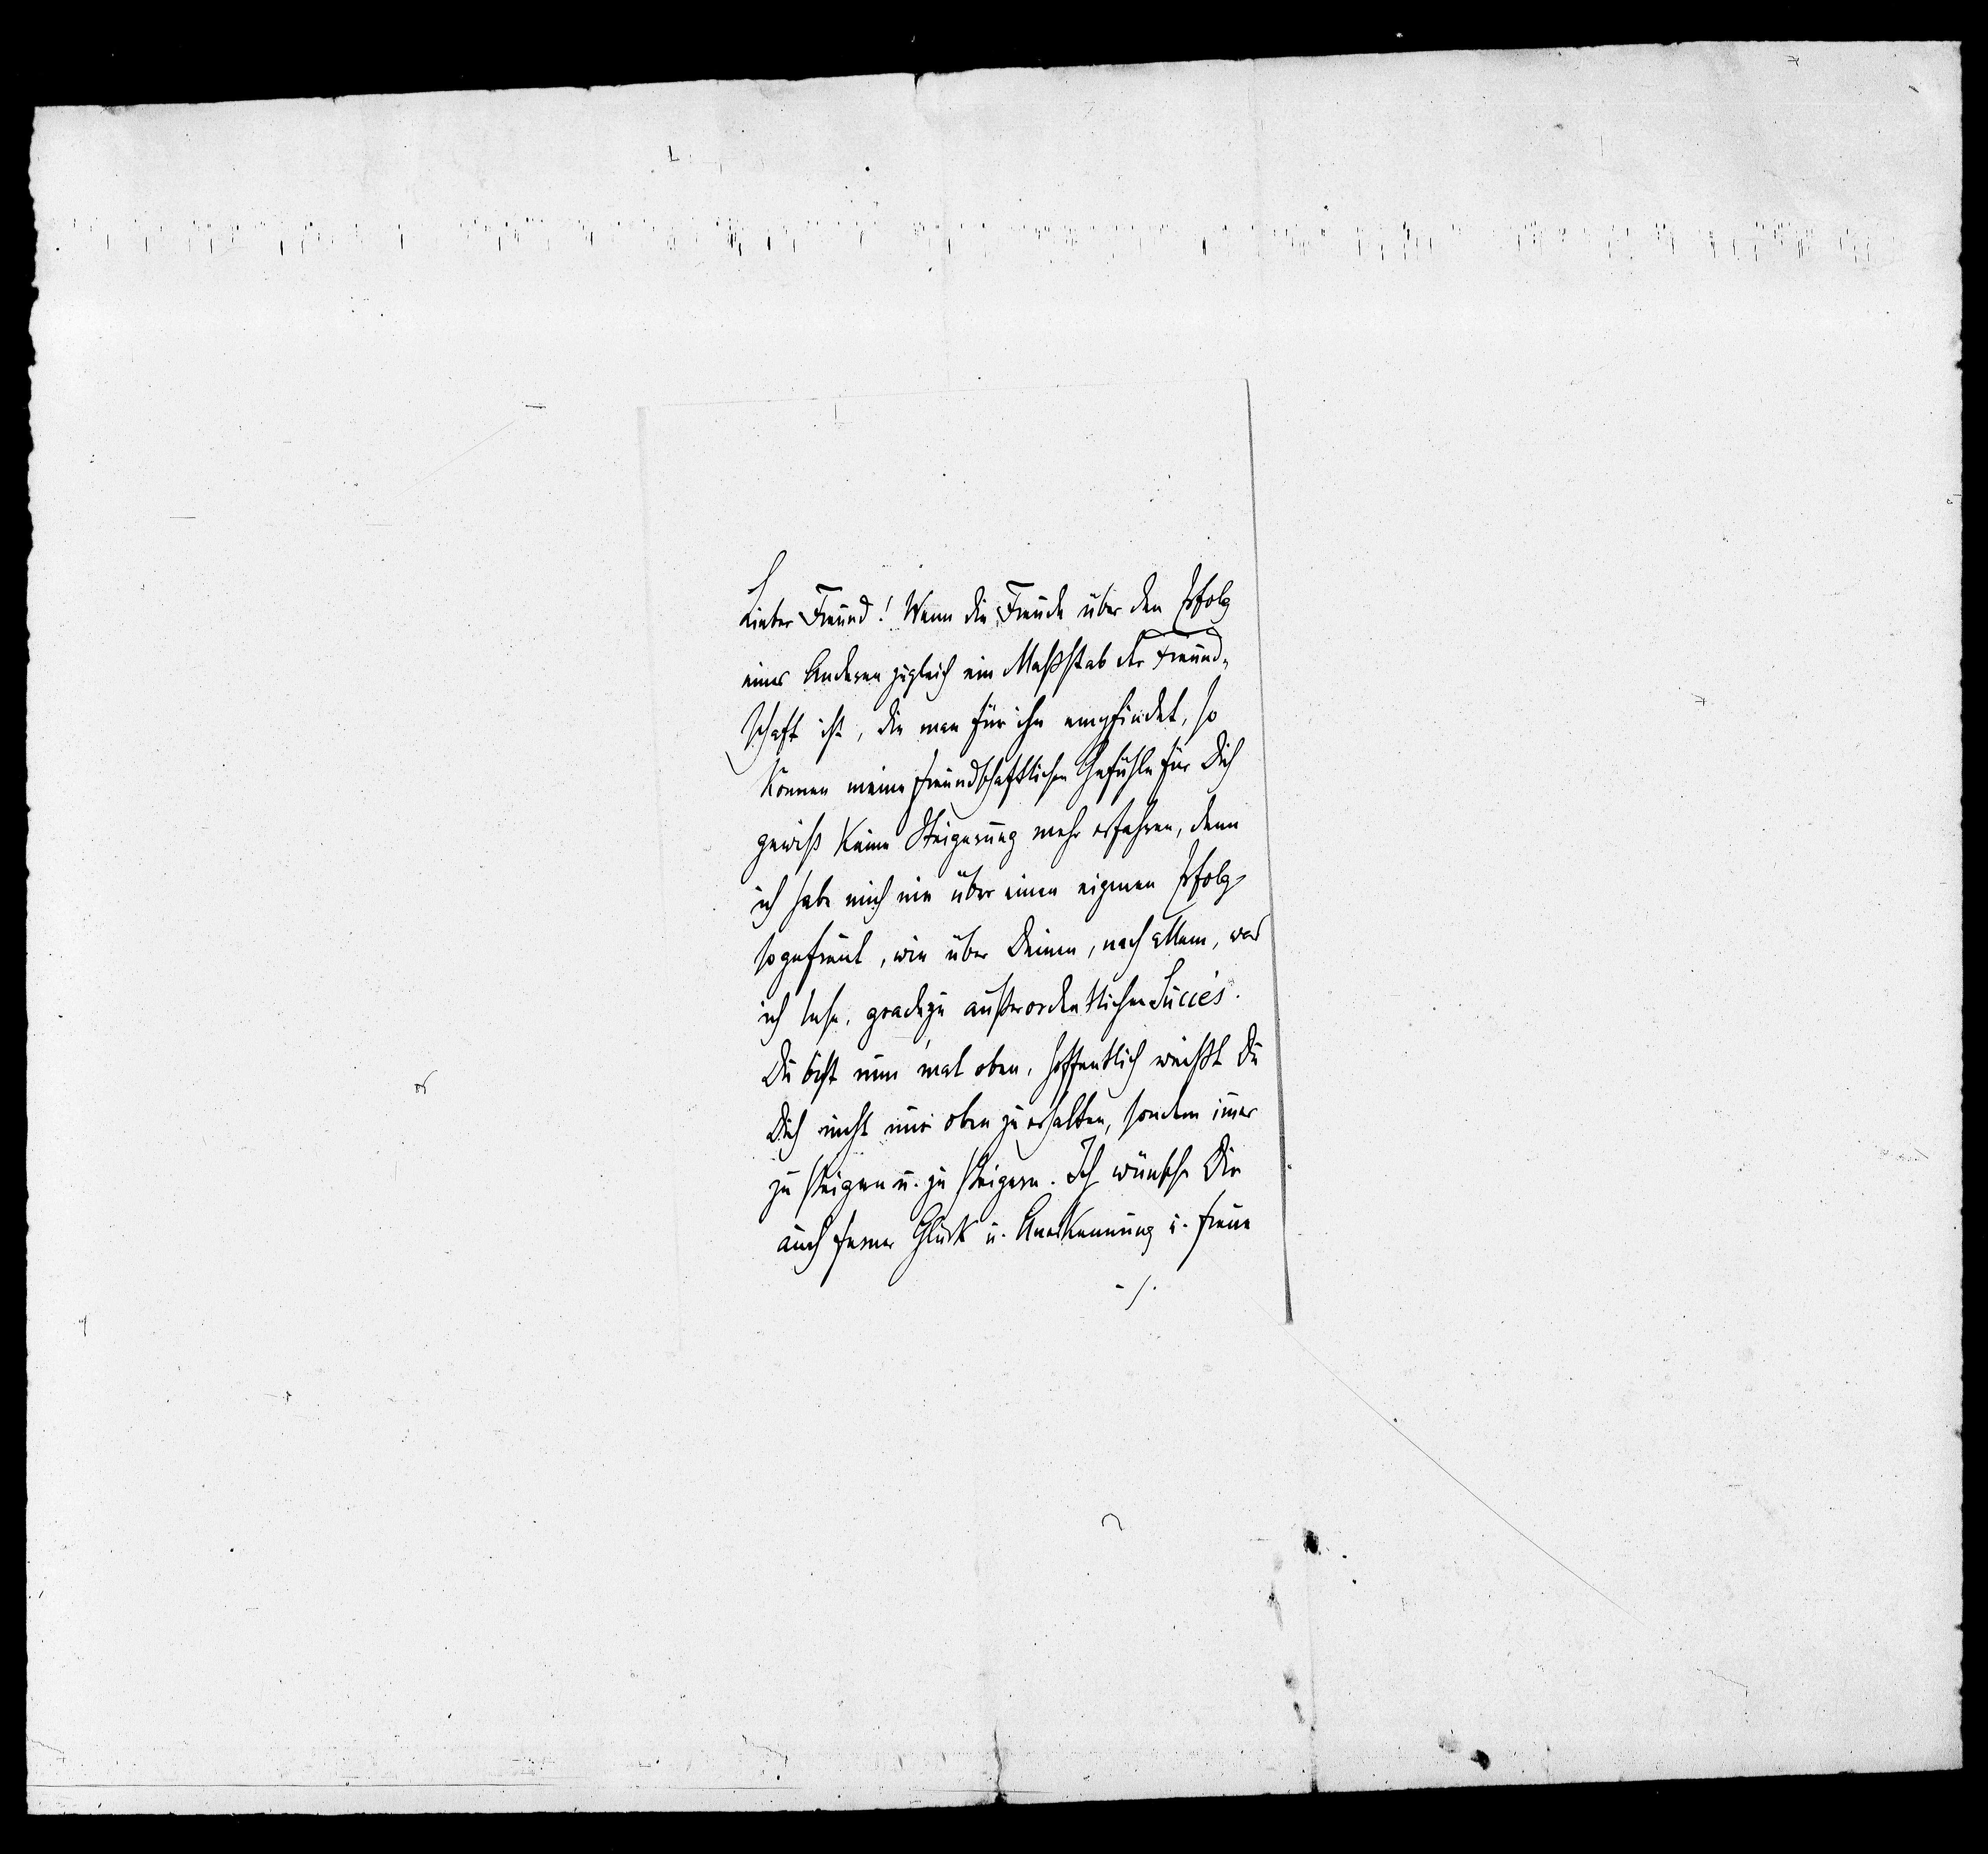 Lieber Freund! Wenn die Freude über den Erfolg
eines Anderen zugleich ein Maßstab der Freund-
schaft ist, die man für ihn empfindet, so
können meine freundschaftlichen Gefühle für Dich
gewiß keine Steigerung mehr erfahren, denn
ich habe mich nie über einen eigenen Erfolg
so gefreut, wie über Deinen, nach Allem, was
ich lese, gradezu außerordentlichen Succès.
Du bist nun 'mal oben, hoffentlich weißt Du
Dich nicht nur oben zu erhalten, sondern immer
zu steigen u. zu steigern. Ich wünsche Dir
auch ferner Glück u. Anerkennung u. freue
-/.